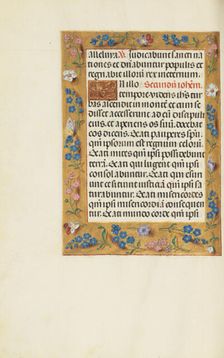 alleluya. V. Iudicabunt sancti na
tiones et dñabuntur populis et
regnabit illorũ rex ineternum.
In illo Secundũ iohem.
tempore videns ihs tur
bas ascendit in montẽ et cum se
disset accesserunt ad eum discipu
li eius, et aperiens os suũ docebat
eos dicens. Beati pauperes spiri
tu qm̃ ipsorum est regnum celorũ.
Beati mites qm̃ ipsi possidebunt
terrã. Beati qui lugent qm̃ ipsi
solabuntur. Beati qui esuri
unt et sitiunt iusticiã qm̃ ipsi
saturabuntur. Beati misericordes
qm̃ ipsi misericordiã consequen
tur. Beati mundo corde qm̃ ipsi